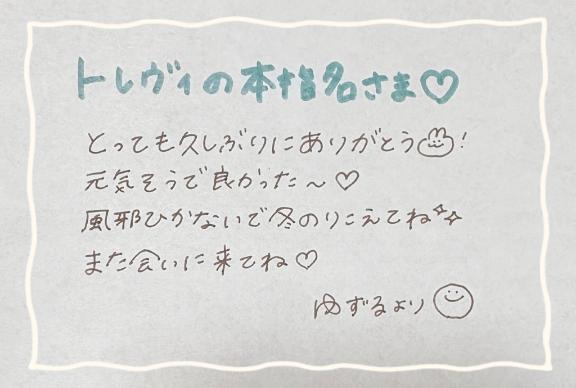 トレヴィの本指名さま♡
とっても久しぶりにありがとう!
元気そうで良かった〜♡
風邪ひかないで冬のりこえてね✨
また会いに来てね♡
ゆずるより